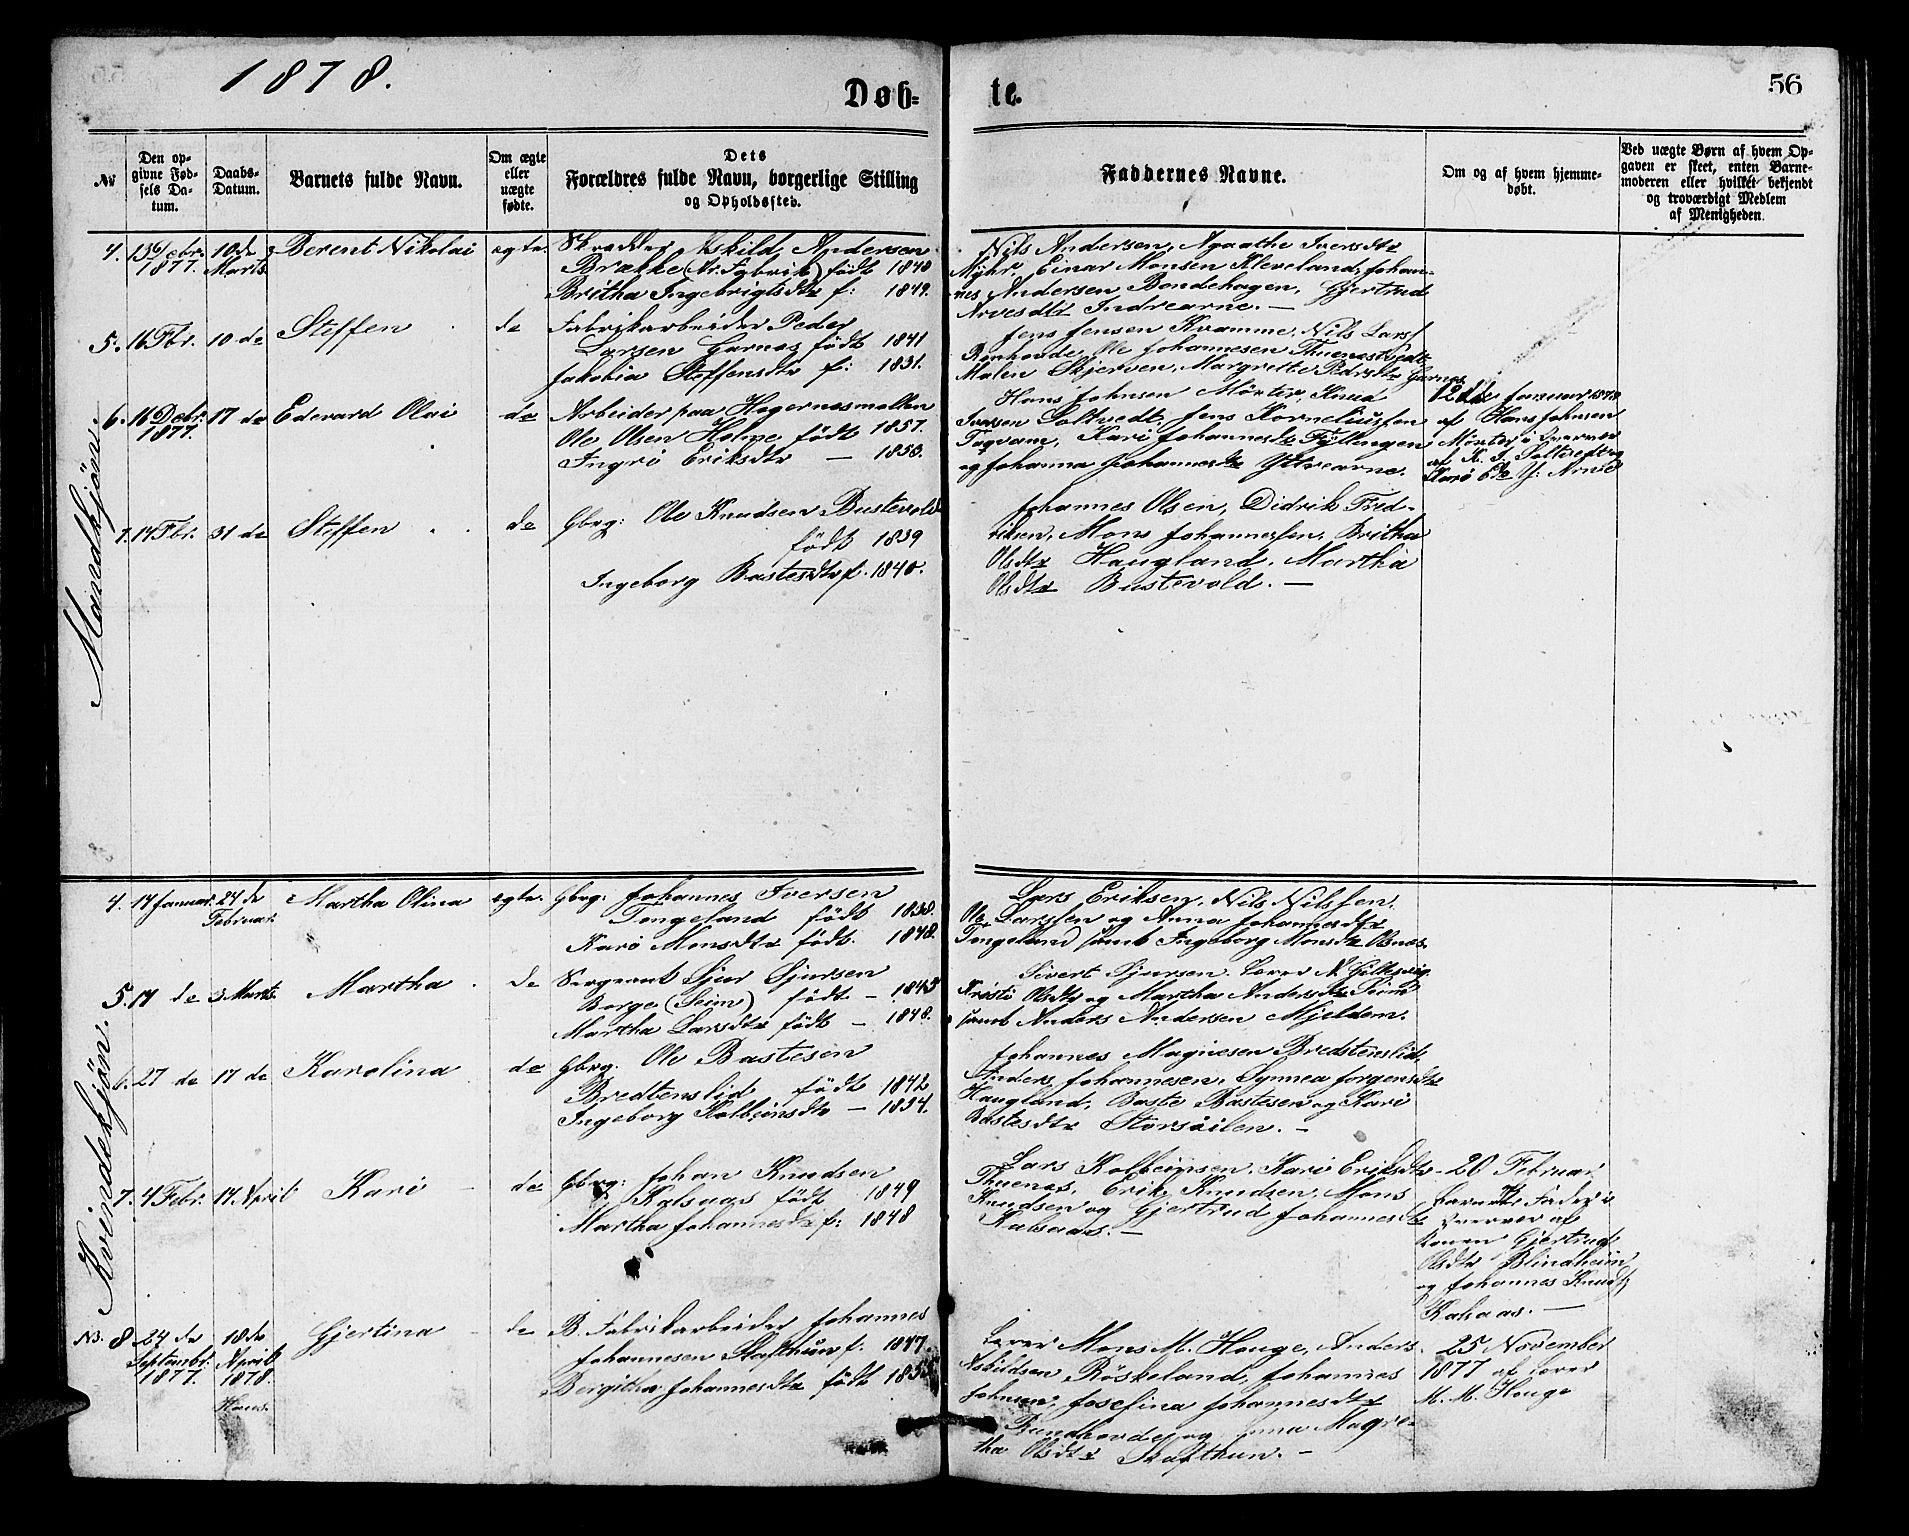 1878.
Døb-
te.
56
№
Den op-
givne Fød-
sels Da-
tum.
Daabs-
Datum.
Barnets fulde Navn.
Om ægte
eller
uægte
fødte.
Dets
Forældres fulde Navn, borgerlige Stilling
og Opholdssted.
Faddernes Navne.
Om og af hvem hjemme-
døbt.
Ved uægte Børn af hvem Op-
gaven er skeet, enten Barne-
moderen eller hvilket bekjendt
og troværdigt Medlem
af Menigheden.
Mandkjøn.
4.
1877.
10 de
Marts
Berent Nikolai
egte.
Skredder Askild Andersen
Brække (Ar. Fabrik) født 1840
Britha Ingebrigtsdtr f: 1849.
Nils Andersen, Agaathe Iversdtr
Myhr, Einar Monsen Kleveland, Johan-
nes Andersen Bondehagen, Gjertrud
Arvesdtr Indrearne. —
5.
16 Fbr.
10 de
Steffen
de
Fabrikarbeider Peder
Larsen Garnes født 1841
Jakobia Steffensdtr f: 1831.
Jens Jensen Kvamme, Nils Lars
Ole Johannesen
Malen Skjerven, Margrethe Pedrsdtr Garnes
6.
16 Debr.
1877.
17 de
Edevard Olai
de
Arbeider paa
Ole Olsen Holme født 1857.
Ingri Eriksdtr — 1853.
Hans Johnsen Mørter, Knud
Iversen Soltvedt, Jens Korneliussen
Tagvam, Kari Johannesdtr Fyllingen
og Johanna Johannesdtr Yttrearne.
12te Januar 1878
af Hans Johnsen
Mørter i Overvær
af K. I. Soltvedt og
7.
14 Fbr.
31 de
Steffen
de
Gbrg: Ole Knudsen Bustevold
født 1839
Ingeborg Bastesdtr f. 1840.
Johannes Olsen, Didrik Fred-
riksen, Mons Johannessen, Britha
Olsdtr Haugland, Martha
Olsdtr Bustevold. —
Kvindekjøn.
4.
17 Januar.
24 de
Februar.
Martha Olina
egte.
Gbrg: Johannes Iversen
Tongeland født 1838.
Kari Monsdtr født. 1848.
Lars Eriksen, Nils Nilssen,
Ole Larssen og Anna Johannesdtr
Tongeland samt Ingeborg Monsdtr
5.
17 de
3. Marts.
Martha
de
Sergeant Sjur Sjursen
Borge (Seim) født — 1843
Martha Larsdtr født — 1848.
Sivert Sjursen. Lærer N.
Kristi Olsdtr og Martha Andersdtr Seim
samt Anders Andersen Mjelden.
6.
27 de
17 de
Karolina
de
Gbrg: Ole Bastesen
Bredtenslid født 1842
Ingeborg Kolbeinsdtr — 1854.
Johannes Magnesen Bredstenslid,
Anders Johannesen, Synnea Jørgensdtr
Haugland, Baste Bastesen og Kari
Bastesdtr Storsæilen. —
7.
4 Febr.
17. April
Kari
de
Gbrg: Johan Knudsen
Kalsaas født 1849
Martha Johannesdtr f: 1848
Lars Kolbeinsen, Kari Eriksdtr
Thuenes, Erik Knudsen, Mons
Knudsen og Gjertrud Johannesdtr
Kalsaas. —
20 Februar
Barnets Fader i
Overvær af
Konen Gjertrud
Olsdtr Blindheim
og Johannes Knuds
Kalsaas. —
N3. 8
24 de
Septembr.
1877.
18 de
April
1878.
Haus.
Gjertina
de
B. Fabrikarbeider Johannes
Johannesen Skafthun f: 1847.
Bergitha Johannesdtr født 185
Lærer Mons M. Houge, Anders
Askildsen Røskeland, Johannes
Johnsen, Josefina Johannesdtr
Rundhovde og Anna Magre-
tha Olsdtr Skafthun. —
25 November
1877 af Lærer
M. M. Houge